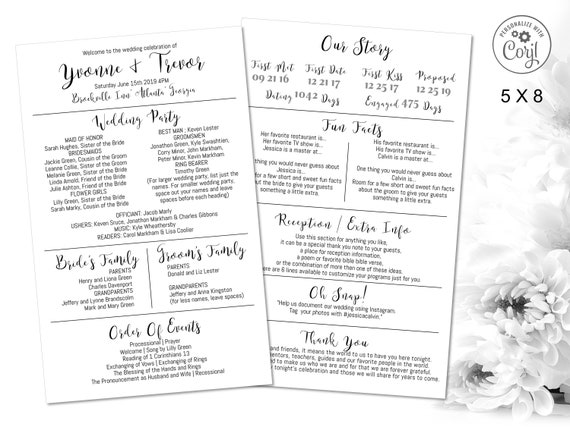 Welcome to the wedding celebration of
Yvonne & Trevor
Saturday June 15th 2019 4PM
Brookville Inn Atlanta Georgia
Wedding Party
MAID OF HONOR
Sarah Hughes, Sister of the Bride
BRIDESMAIDS
Jackie Green, Cousin of the Groom
Leanne Collie, Sister of the Groom
Melanie Green, Sister of the Bride
Linda Arnold, Friend of the Bride
Julie Ashton, Friend of the Bride
FLOWER GIRLS
Lilly Green, Sister of the Bride
Sarah Marky, Cousin of the Bride
BEST MAN : Kevin Lester
GROOMSMEN
Jonathan Green, Kyle Swashtien,
Corry Minor, John Markham,
Peter Minor, Kevin Markham
RING BEARER
Timothy Green
(For larger wedding party, list just the
names. For smaller wedding party,
space out your names and leave
spaces before each heading)
OFFICIANT: Jacob Marly
USHERS: Keven Sruce, Jonathan Markham & Charles Gibbons
MUSIC: Kyle Wheathersby
READERS: Carol Markham & Lisa Coolier
Bride's Family
PARENTS
Henry and Liona Green
Charles Davenport
GRANDPARENTS
Jeffery and Lynne Brandscolm
Mark and Mary Green
Groom's Family
PARENTS
Donald and Liz Lester
GRANDPARENTS
Jeffery and Anna Kingston
(for less names, leave spaces)
Order Of Events
Processional | Prayer
Welcome | Song by Lilly Green
Reading of 1 Corinthians 13
Exchanging of Vows | Exchanging of Rings
The Blessing of the Hands and Rings
The Pronouncement as Husband and Wife | Recessional
Our Story
First Met
09 21 16
First Date
12 21 17
First Kiss
12 25 17
Proposed
12 25 19
Dating 1042 Days
Engaged 475 Days
Fun Facts
Her favorite restaurant is...
Her favorite TV show is...
Jessica is a master at...
One thing you would never guess about
Jessica is...
Room for a few short and sweet fun facts
about the bride to give your guests
something a little extra.
His favorite restaurant is...
His favorite TV show is...
Calvin is a master at...
One thing you would never guess about
Calvin is...
Room for a few short and sweet fun facts
about the groom to give your guests
something a little extra.
Reception / Extra Info
Use this section for anything you like,
it can be a special thank you note to your guests,
a place for reception information,
a poem or favorite bible bible verse,
or the combination of more then one of these ideas.
are & lines available to customize your programs just for you!
Oh Snap!
"Help us document our wedding using Instagram.
Tag your photos with #jessicacalvin."
Thank You
and friends, it means the world to us to have you here tonight.
mentors, teachers, guides and our favorite people in the world.
to make us who we are and for that we are forever grateful.
tonight's celebration and those we will share for years to come.
PERSONALIZE WITH
Corjl
5 X 8